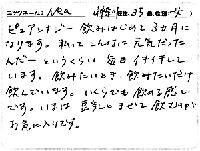 ニックネーム: Nea 年齢: 35歳
ピュアレナジー飲みはじめて3ヵ月に
なります。私ってこんなに元気だった
んだーというくらい毎日イキイキして
います。飲みたいとき、飲みたいだけ
飲んでいます。いくらでも飲める感じ
です。いまは見らしとませて飲むのが
お気に入りです。